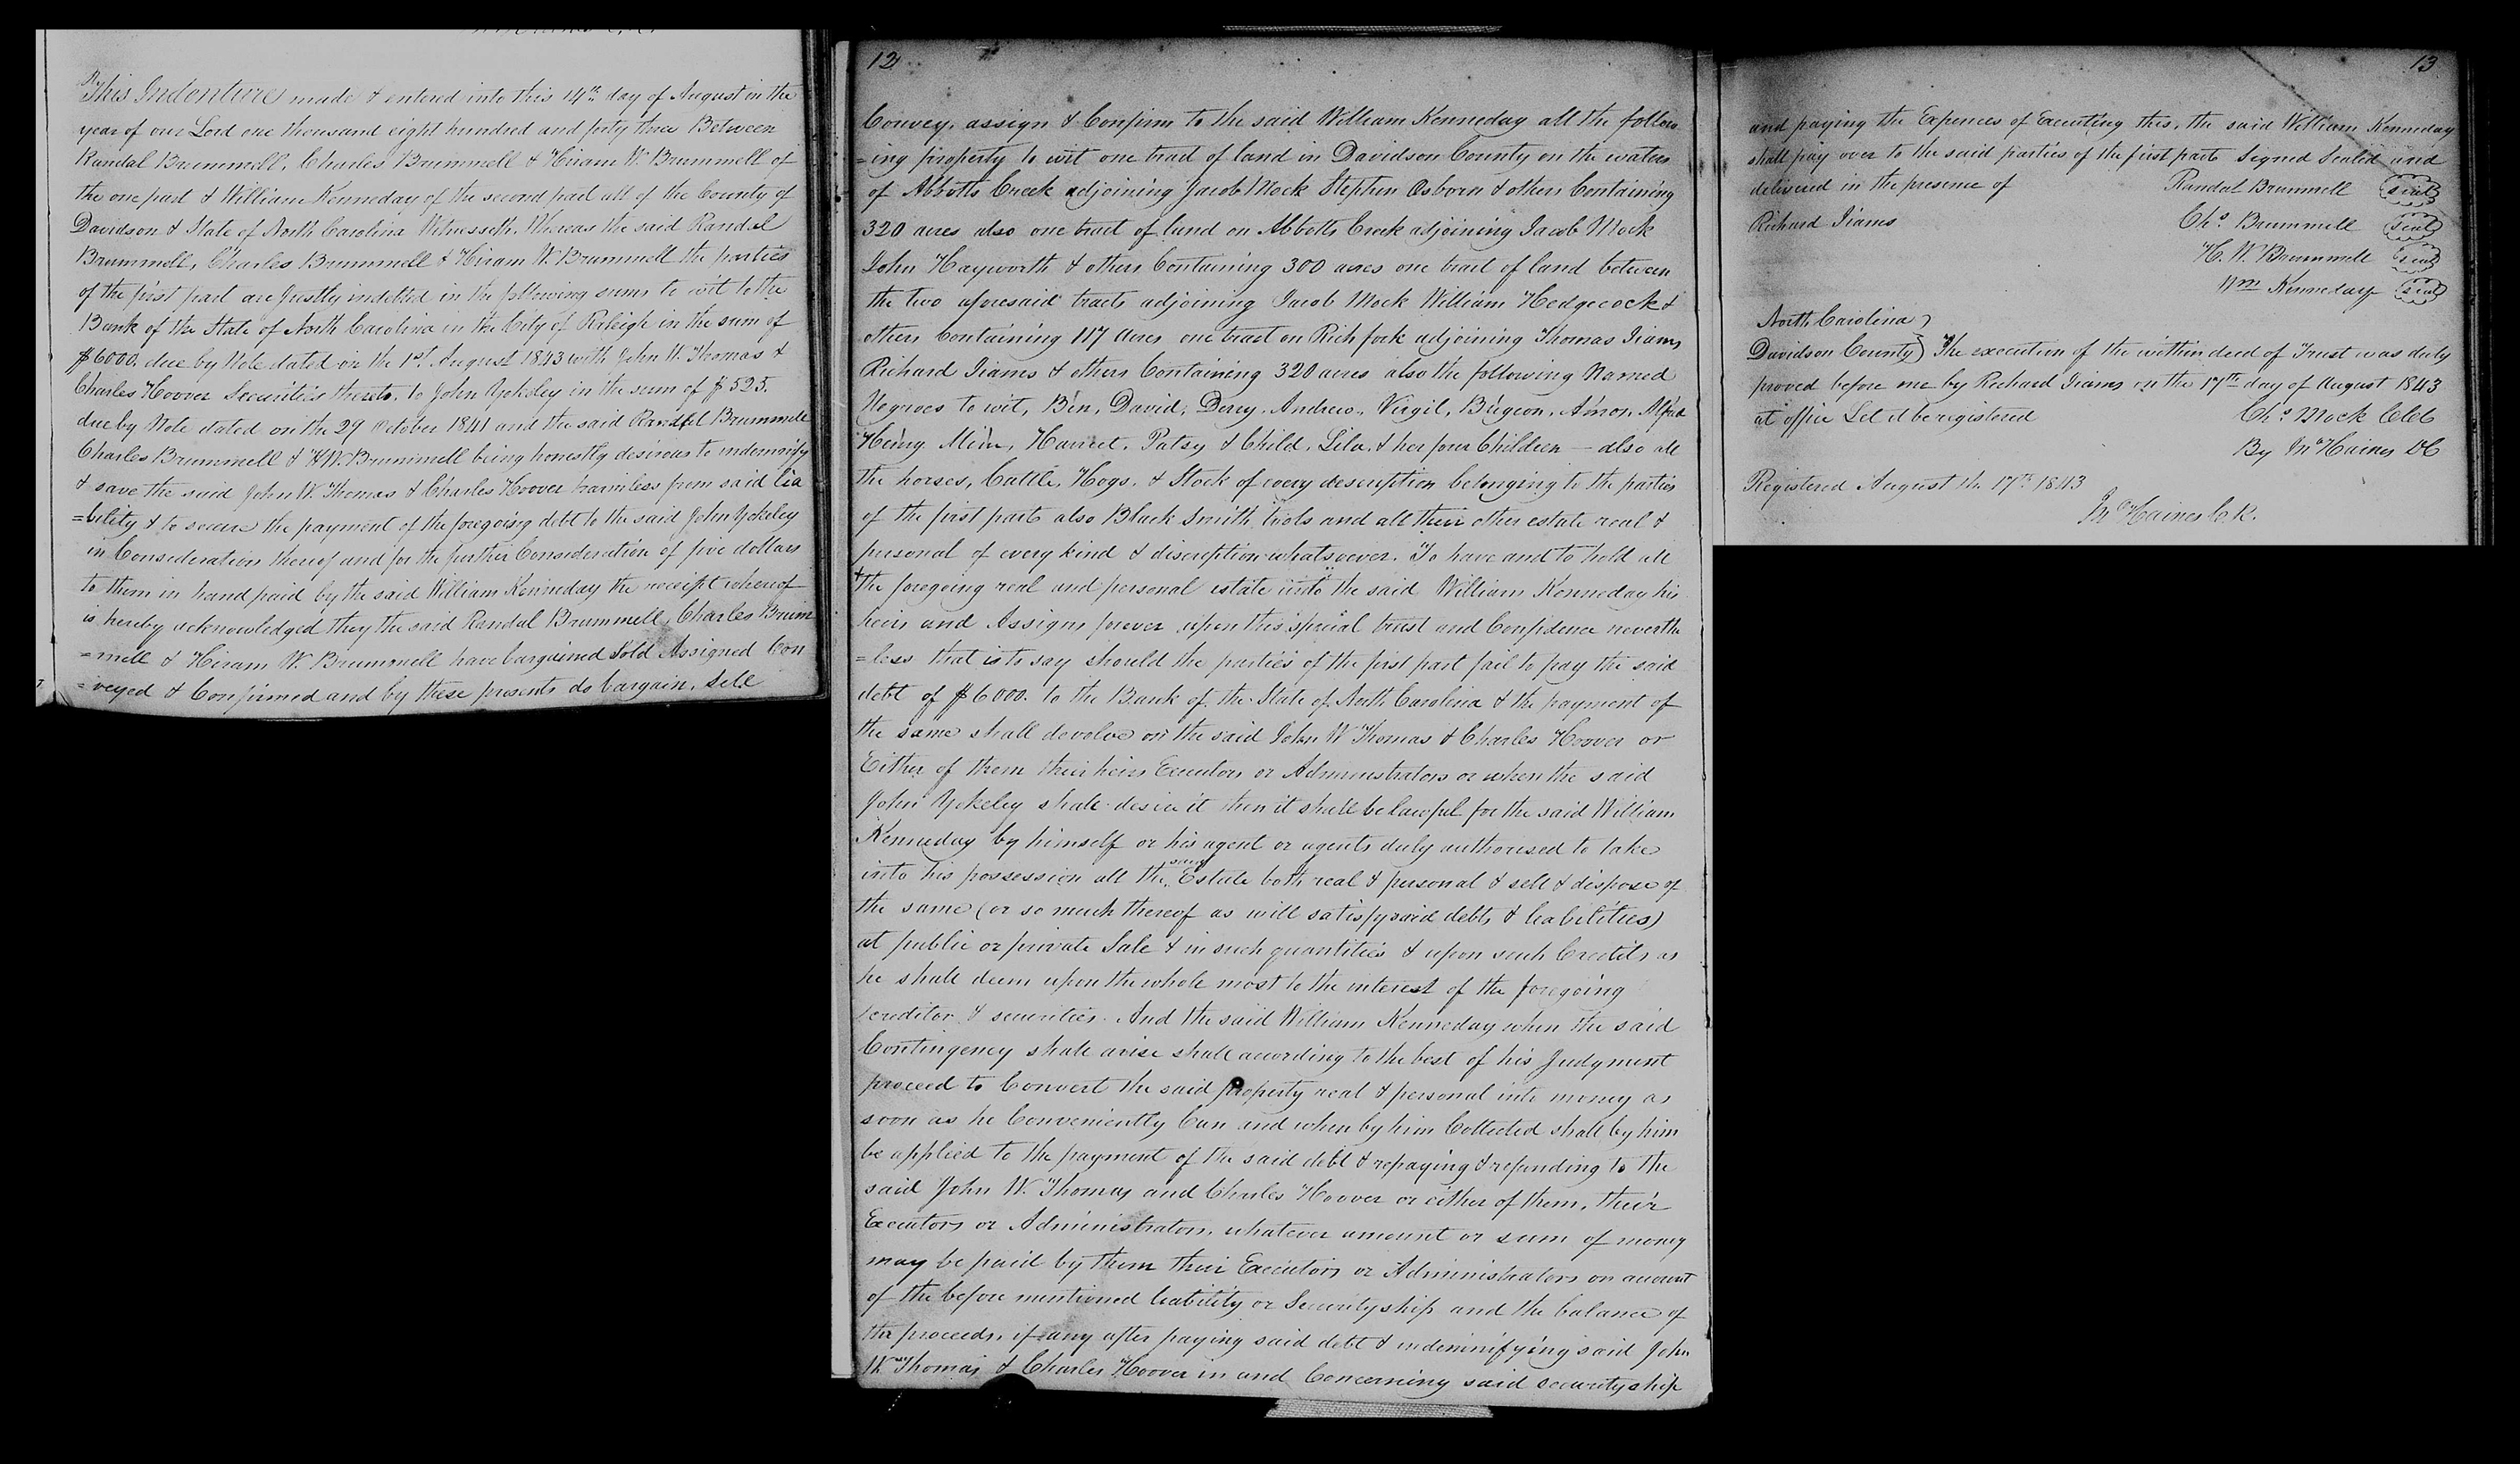 This Indenture made & entered into this 14th day of August in the
year of our Lord one thousand eight hundred and forty three Between
Randal Brummell, Charles Brummell & Hiram W. Brummell of
the one part & William Kenneday of the second part all of the County of
Davidson & State of North Carolina Witnesseth, Whereas the said Randal
Brummell, Charles Brummell & Hiram W. Brummell the parties
of the first part are justly indebted in the following sums to wit to the
Bank of the State of North Carolina in the City of Raleigh in the sum of
$6000. due by Note dated on the 1st. August 1843 with John W. Thomas &
Charles Hoover Securities thereto, to John Yokeley in the sum of $525.
due by Note dated on the 29 October 1841 and the said Randal Brummell
Charles Brummell & H W. Brummell being honestly desirous to indemnify
& save the said John W. Thomas & Charles Hoover harmless from said lia
=bility & to secure the payment of the foregoing debt to the said John Yokeley
in Consideration thereof and for the further Consideration of five dollars
to them in hand paid by the said William Kenneday the receipt whereof
is hereby acknowledged they the said Randal Brummell, Charles Brum
=mell & Hiram W. Brummell have bargained Sold Assigned Con
=veyed & Confirmed and by these presents do bargain, sell
12
Convey, assign & Confirm to the said William Kenneday all the follow
=ing property to wit one tract of land in Davidson County on the waters
of Abbotts Creek adjoining Jacob Mock Stephen Osborn & others Containing
320 acres also one tract of land on Abbotts Creek adjoining Jacob Mock
John Hayworth & others Containing 300 acres one tract of land between
the two aforesaid tracts adjoining Jacob Mock William Hedgecock &
others Containing 117 acres one tract on Rich fork adjoining Thomas Iiams
Richard Iiames & others Containing 320 acres also the following Named
Negroes to wit, Ben, David, Andrew, Virgil, Amon, Alfred
Henry Harriet, Patsy & Child, Lila, & her four Children — also all
the horses, Cattle, Hogs, & Stock of every description belonging to the parties
of the first part also Black Smith tools and all their other estate real &
personal of every kind & discreption whatsoever. To have and to hold all
the foregoing real and personal estate unto the said William Kenneday his
heirs and Assigns forever upon this special trust and Confidence neverthe
=less that is to say should the parties of the first part fail to pay the said
debt of $6000. to the Bank of the State of North Carolina & the payment of
the same shall devolve on the said John W Thomas & Charles Hoover or
Either of them their heirs Executors or Administrators or when the said
John Yokeley shall desire it then it shall be lawful for the said William
Kenneday by himself or his agent or agents duly authorised to take
into his possession all the same Estate both real & personal & sell & dispose of
the same (or so much thereof as will satisfy said debts & liabilities)
at public or private Sale & in such quantities & upon such Credits as
he shall deem upon the whole most to the interest of the foregoing
creditor & securities. And the said William Kenneday when the said
Contingency shall arise shall according to the best of his Judgment
proceed to Convert the said property real & personal into money as
soon as he Conveniently Can and when by him Collected shall by him
be applied to the payment of the said debt & repaying & refunding to the
said John W. Thomas and Charles Hoover or either of them, their
Executors or Administrators, whatever amount or sum of money
may be paid by them their Executors or Administrators on account
of the before mentioned liability or Securityship and the balance of
the proceeds, if any after paying said debt & indemnifying said John
W Thomas & Charles Hoover in and Concerning said securityship
13
and paying the Expences of Executing this, the said William Kenneday
shall pay over to the said parties of the first part Signed Sealed and
delivered in the presence of Randal Brummell seal
Richard Iiams Chs. Brummell seal
H. W. Brummell seal
Wm Kenneday seal
North Carolina
Davidson County The execution of the within deed of Trust was duly
proved before me by Richard Iiams on the 17th day of August 1843
at office Let it be registered Chs Mock CCC
By Jno Haines DC
Registered August the 17th 1843
Jno Haines C.R.